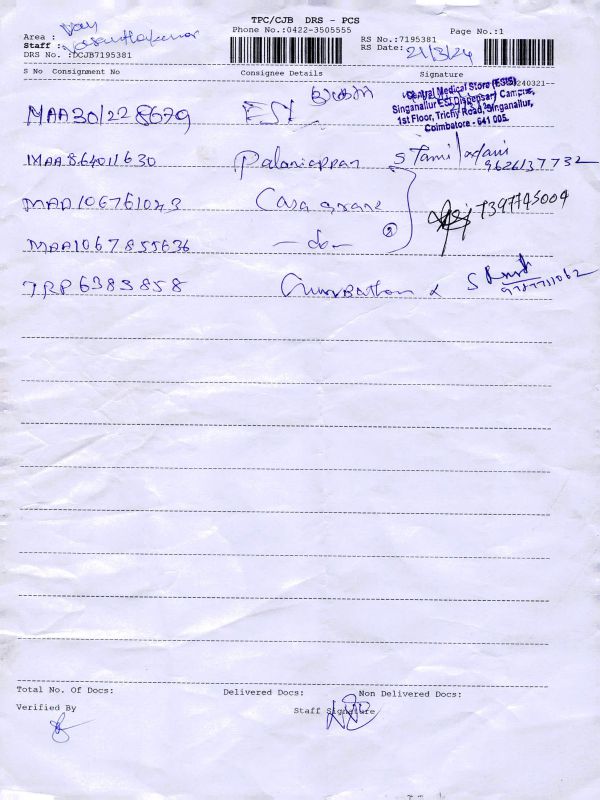 TPC/CJB DRS - PCS
Area :
Phone No.:0422-3505555
Page No.:1
Staff : Vasanthakumar
RS No.:7195381
DRS No. :DCJB7195381
RS Date: 21/3/24
S No Consignment No Consignee Details Signature
240321--
Central Medical Store (ESIS)
Singanallur ESI Dispensary Campus,
1st Floor, Trichy Road, Singanallur,
Coimbatore - 641 005.
MAA301228679 ESI
MAA864011630 Palaniappan S Tamil 9626137732
MAA106761043 Casa grane 7397745004
MAA1067855636 - do - 2
TRP6383858 &
Total No. Of Docs: Delivered Docs: Non Delivered Docs:
Verified By Staff Signature